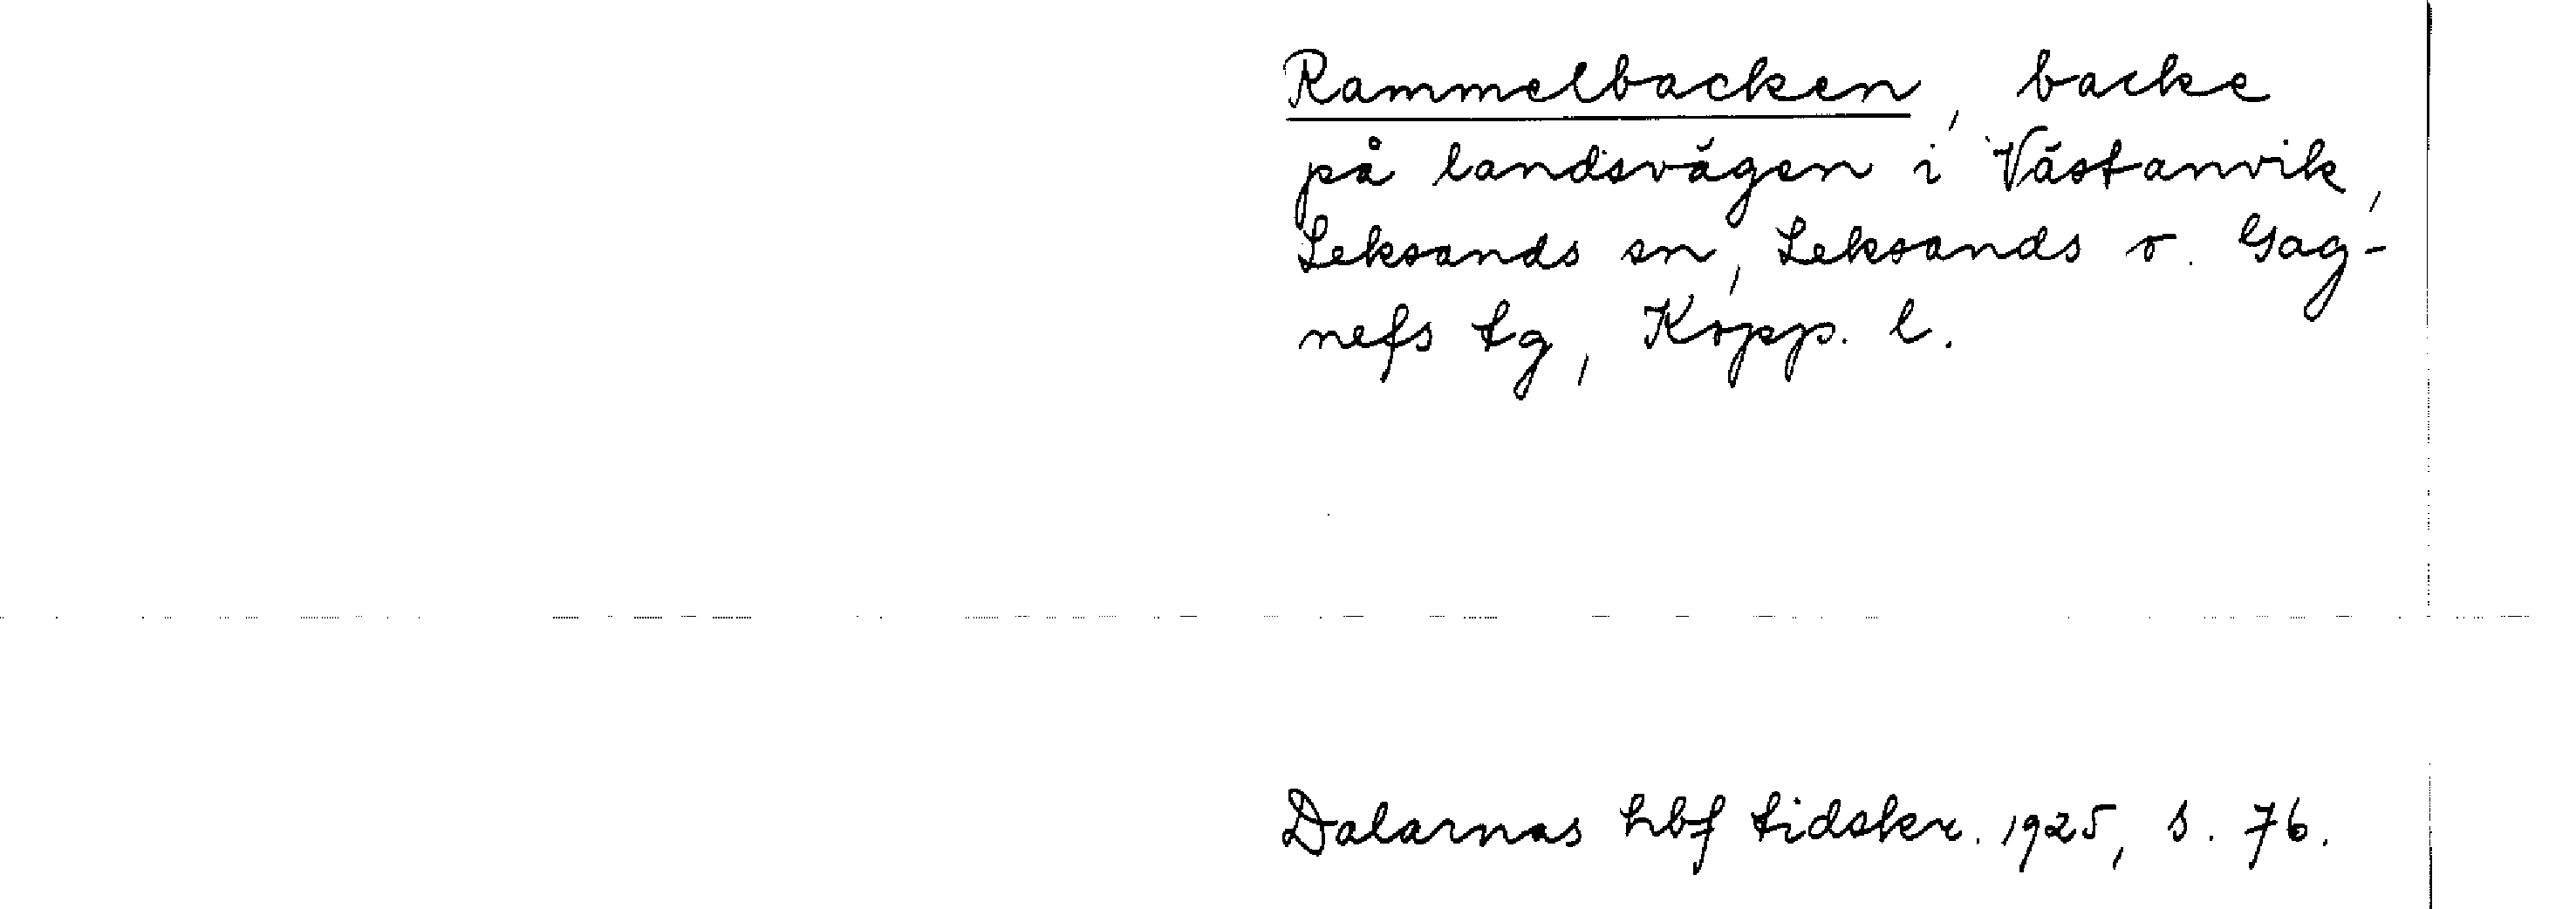 Rammelbacken, backe
på landsvägen i Västanvik,
Leksands sn, Leksands o. Gag-
nefs tg, Kopp. l.
Dalarnas hbf tidskr. 1925, s. 76.